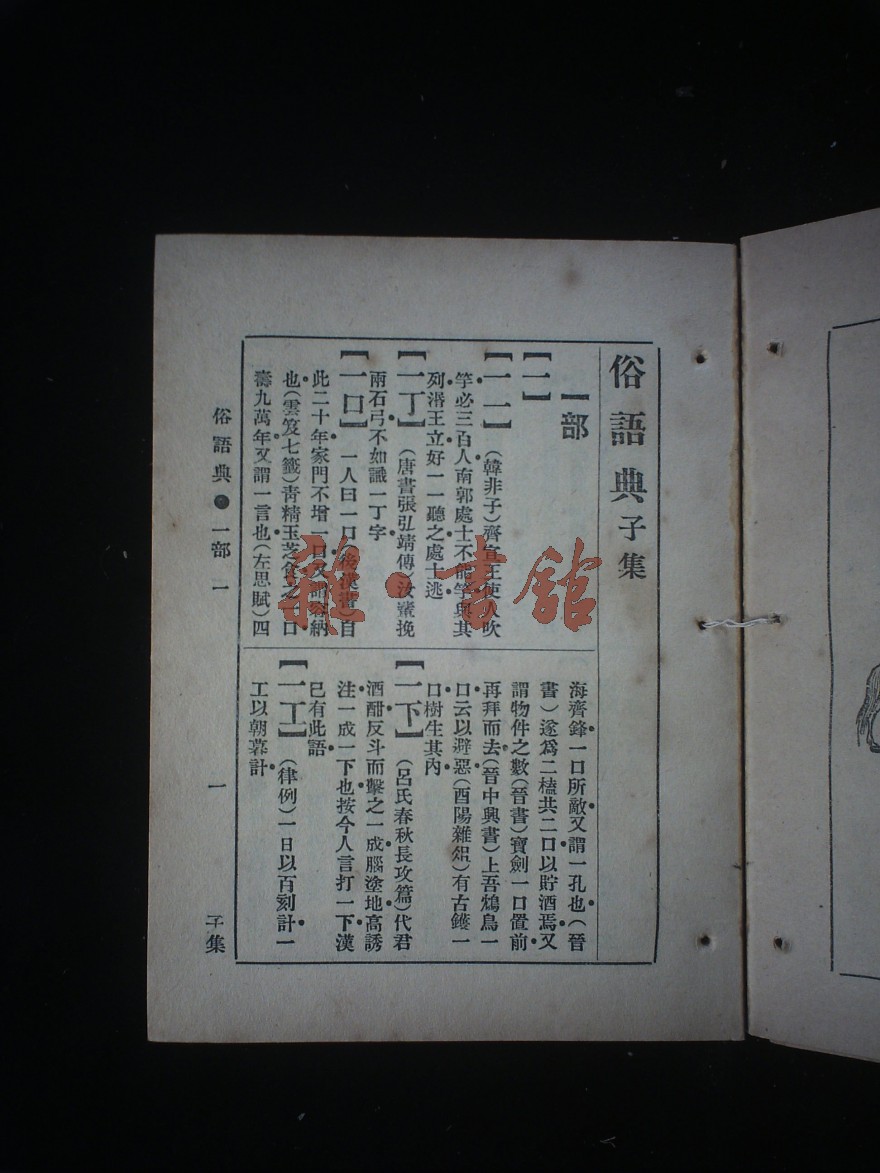 俗語典子集
一部
【一】
【一一】(韓非子)齊宣王使人吹
竽必三百人南郭處士不能竽與其
列湣王立好一一聽之處士逃
【一丁】(唐書張弘靖傳)汝輩挽
兩石弓不如識一丁字
【一口】一人曰一口(後漢書)自
此二十年家門不增一口又謂容納
也(雲笈七籤)青精玉芝食之一口
壽九萬年又謂一言也(左思賦)四
海齊鋒一口所敵又謂一孔也(晉
書)遂爲二榼共二口以貯酒焉又
謂物件之數(晉書)寶劍一口置前
再拜而去(晉中興書)上吾鴆鳥一
口云以避惡(酉陽雜俎)有古鑊一
口樹生其內
【一下】(呂氏春秋長攻篇)代君
酒酣反斗而擊之一成腦塗地高誘
注一成一下也按今人言打一下漢
已有此語
【一工】(律例)一日以百刻計一
工以朝暮計
俗語典●一部 一
一
子集
雜·書館